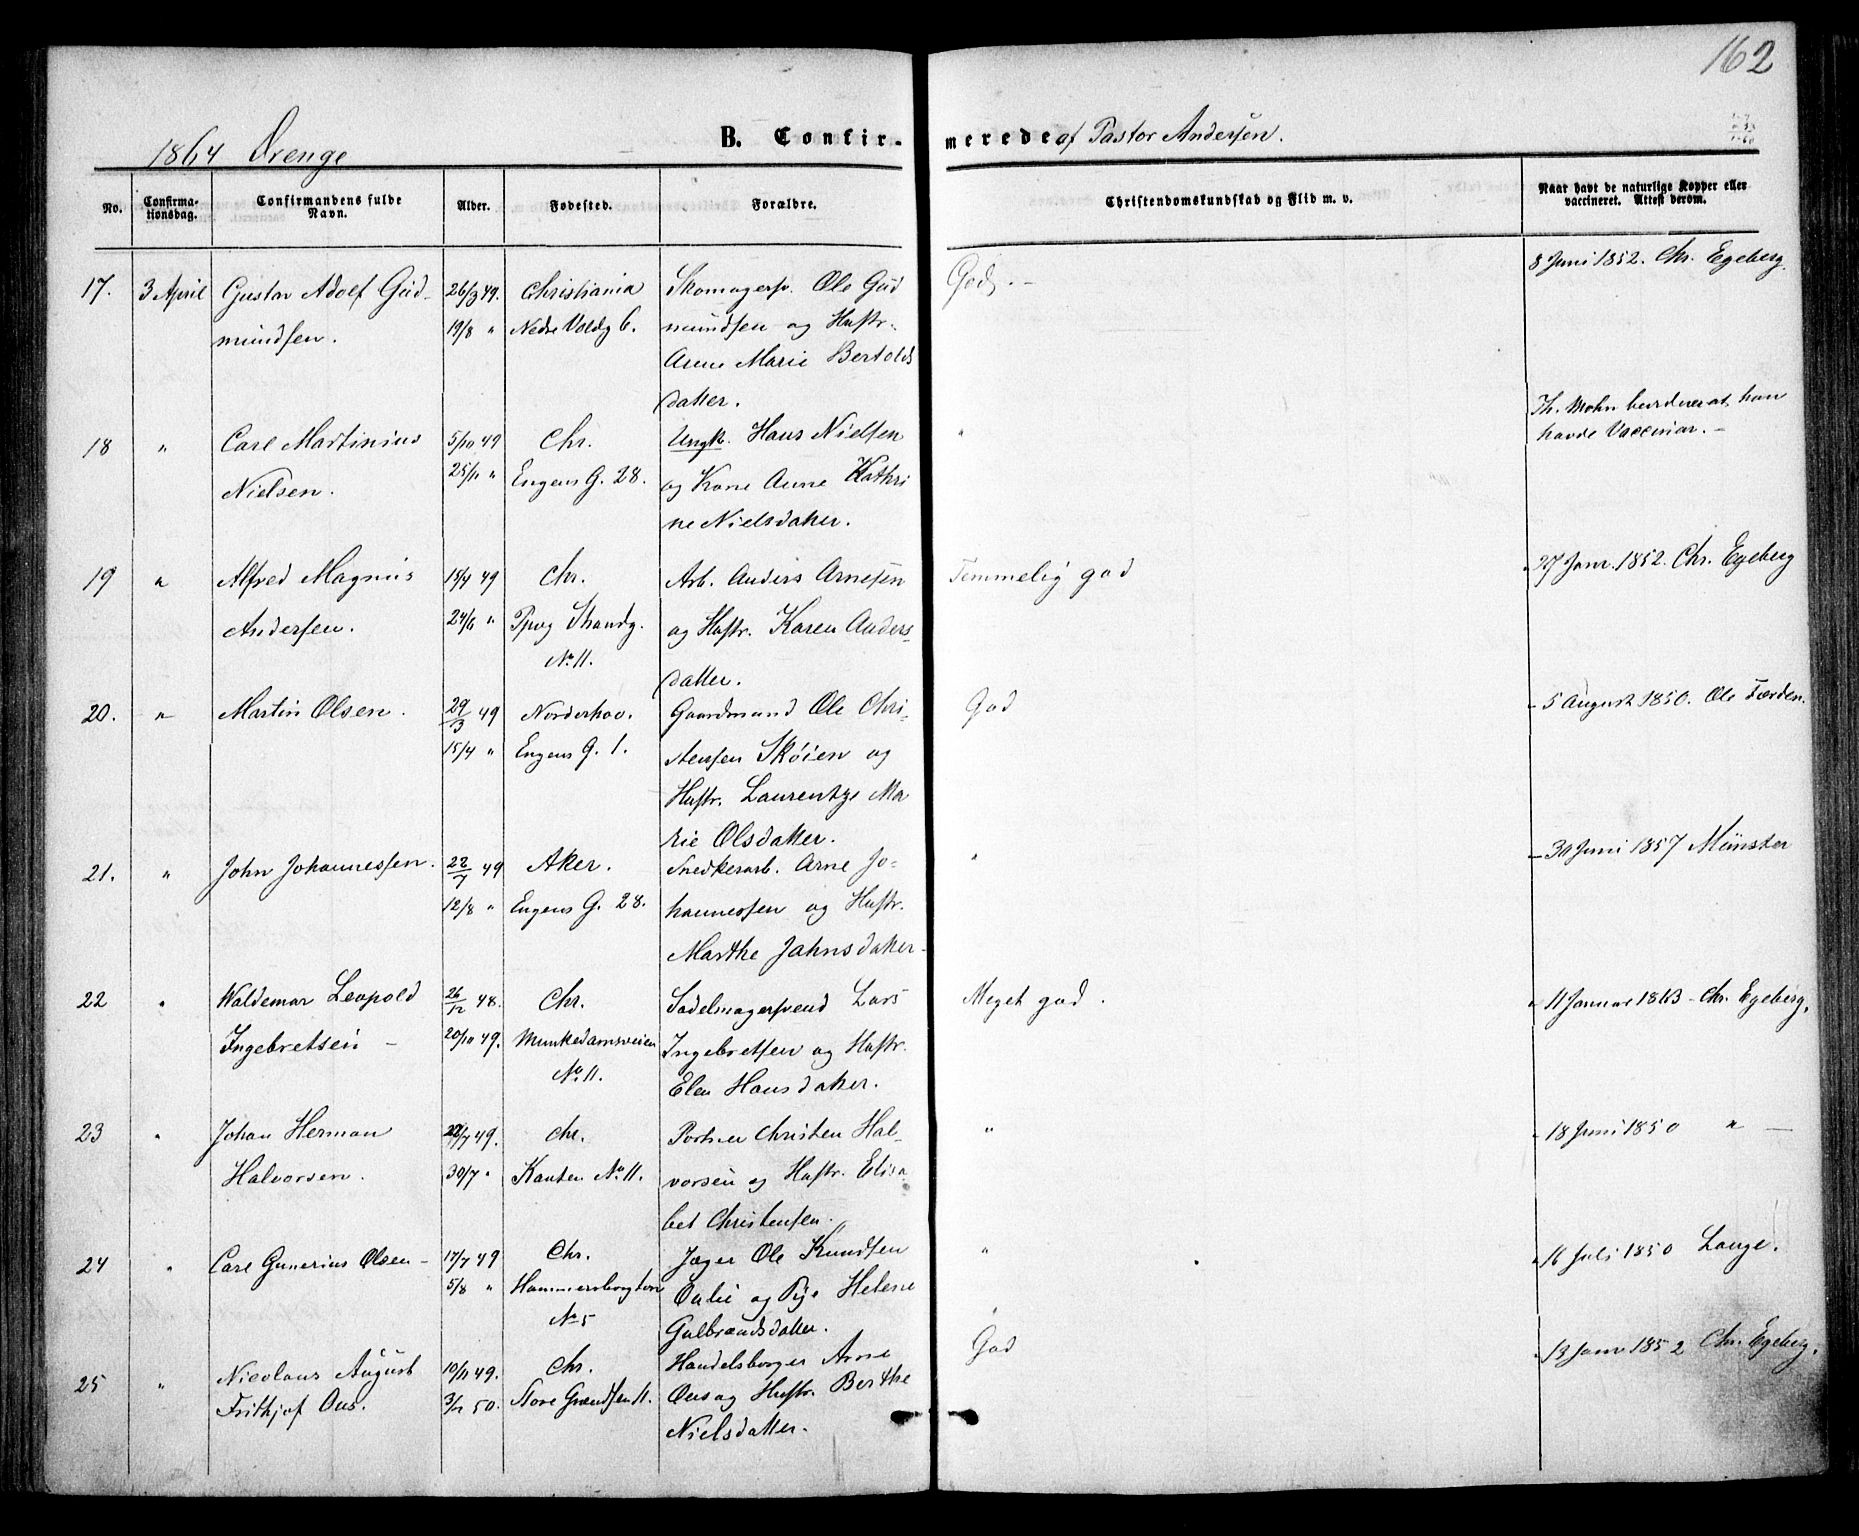 162
1864 Drenge
B. Confir-
merede af Pastor Andersen.
No.
Confirma-
tionsdag.
Confirmandens fulde
Navn.
Alder.
Fødested.
Forældre.
Christendomskundskab og Flid m. v.
Naar havt de naturlige Kopper eller
vaccineret. Attest derom.
17. 3 April Gustav Adolf Gud- 26/3 49. Christiania Skomagersv. Ole Gud God. - 8 Juni 1852. Chr. Egeberg.
mundsen. 19/8 " Nedre Voldg 6. mundsen og Hustr.
Anne Marie Bertolds
datter.
18 " Carl Martinius 5/10 49 Chr. Ungk. Hans Nielsen " Th. Mohn han
Nielsen. 25/11 " Engens G. 28. og Kone Anne Kathri havde
ne Nielsdatter.
19 " Alfred Magnus 15/4 49 Chr. Arb. Anders Arnesen Temmelig god 27 Janr. 1852. Chr. Egeberg
Andersen. 24/6 " Pipvg Strandg. og Hustr. Karen Anders-
No 11. datter.
20. " Martin Olsen. 29/3 49 Norderhov. Gaardmand Ole Chri- God - 5 August 1850. Ole Færden.
15/4 " Engens G. 1. stensen Skøien og
Hustr. Laurentze Ma
rie Olsdatter.
21. " John Johannessen. 22/7 49 Aker. Snedkerarb. Arne Jo- " - 30 Juni 1857 Münster
12/8 " Engens G. 28. hannessen og Hustr.
Marthe Jahnsdatter-
22 " Waldemar Leopold 26/12 48. Chr. Sadelmagersvend Lars Meget god. " 11 Januar 1863 - Chr. Egeberg,
Ingebretsen - 20/10 49. Munkedamsveien Ingebretsen og Hustr.
No 11. Elen Hansdatter.
23 " Johan Herman 49. Chr. Portner Christen Hal- " - 18 Juni 1850 " -
Halvorsen. 30/7 " Kanten No 11. vorsen og Hustr. Elisa
bet Christensen.
24 " Carl Gunerius Olsen - 17/7 49 Chr. Jæger Ole Knudsen " " 16 Juli 1850 Lange.
5/8 " Hammersborgtorv og Pige Helene
No 5 Gulbrandsdatter.
25 " Nicolaus August 10/11 49. Chr. Handelsborger Arne God " 13 Janr 1852 Chr. Egeberg,
Frithjof Ous. 3/2 50. Store Grændsen 11. Ous og Hustr. Berthe
Nielsdatter.